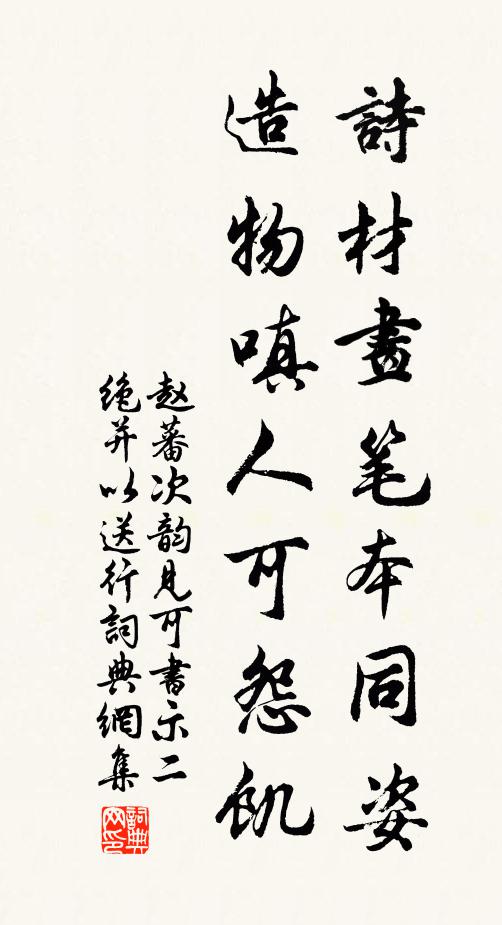 詩材畫笔本同姿
造物嗔人可怨飢
赵蕃次韵見可書示二
绝并以送行詞典網集
詞典网印